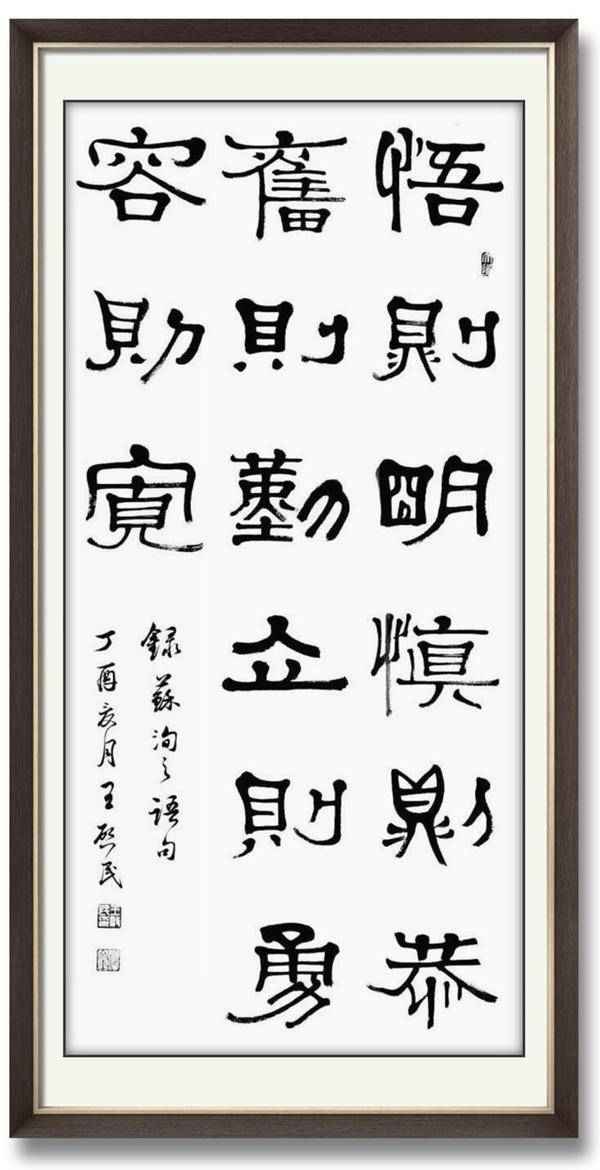 悟則明慎則恭
奮則勤立則勇
容則寬
錄蘇洵之語句
丁酉亥月王啟民